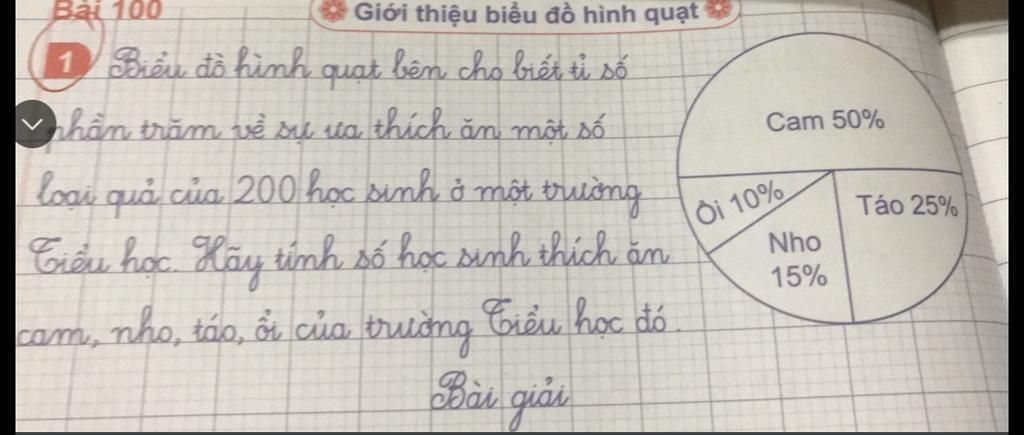 Bài 100
Giới thiệu biểu đồ hình quạt
1 Biểu đồ hình quạt bên cho biết tỉ số
phần trăm về sự ưa thích ăn một số
loại quả của 200 học sinh ở một trường
Tiểu học. Hãy tính số học sinh thích ăn
cam, nho, táo, ổi của trường Tiểu học đó.
Bài giải
Cam 50%
Ổi 10%
Táo 25%
Nho
15%